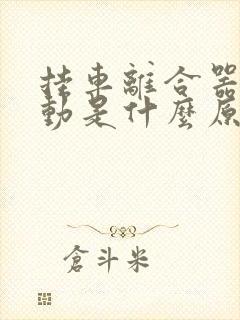 挂車離合器
動是什麼原
倉斗米